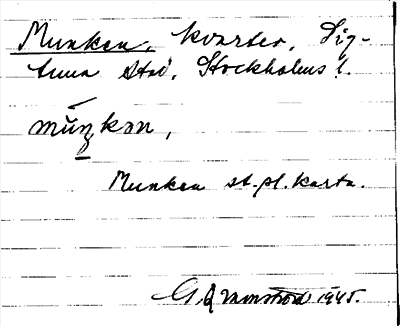 Munken, kvarter, Sig-
tuna stad, Stockholms l.
munkən,
Munken st.pl.karta.
1945.